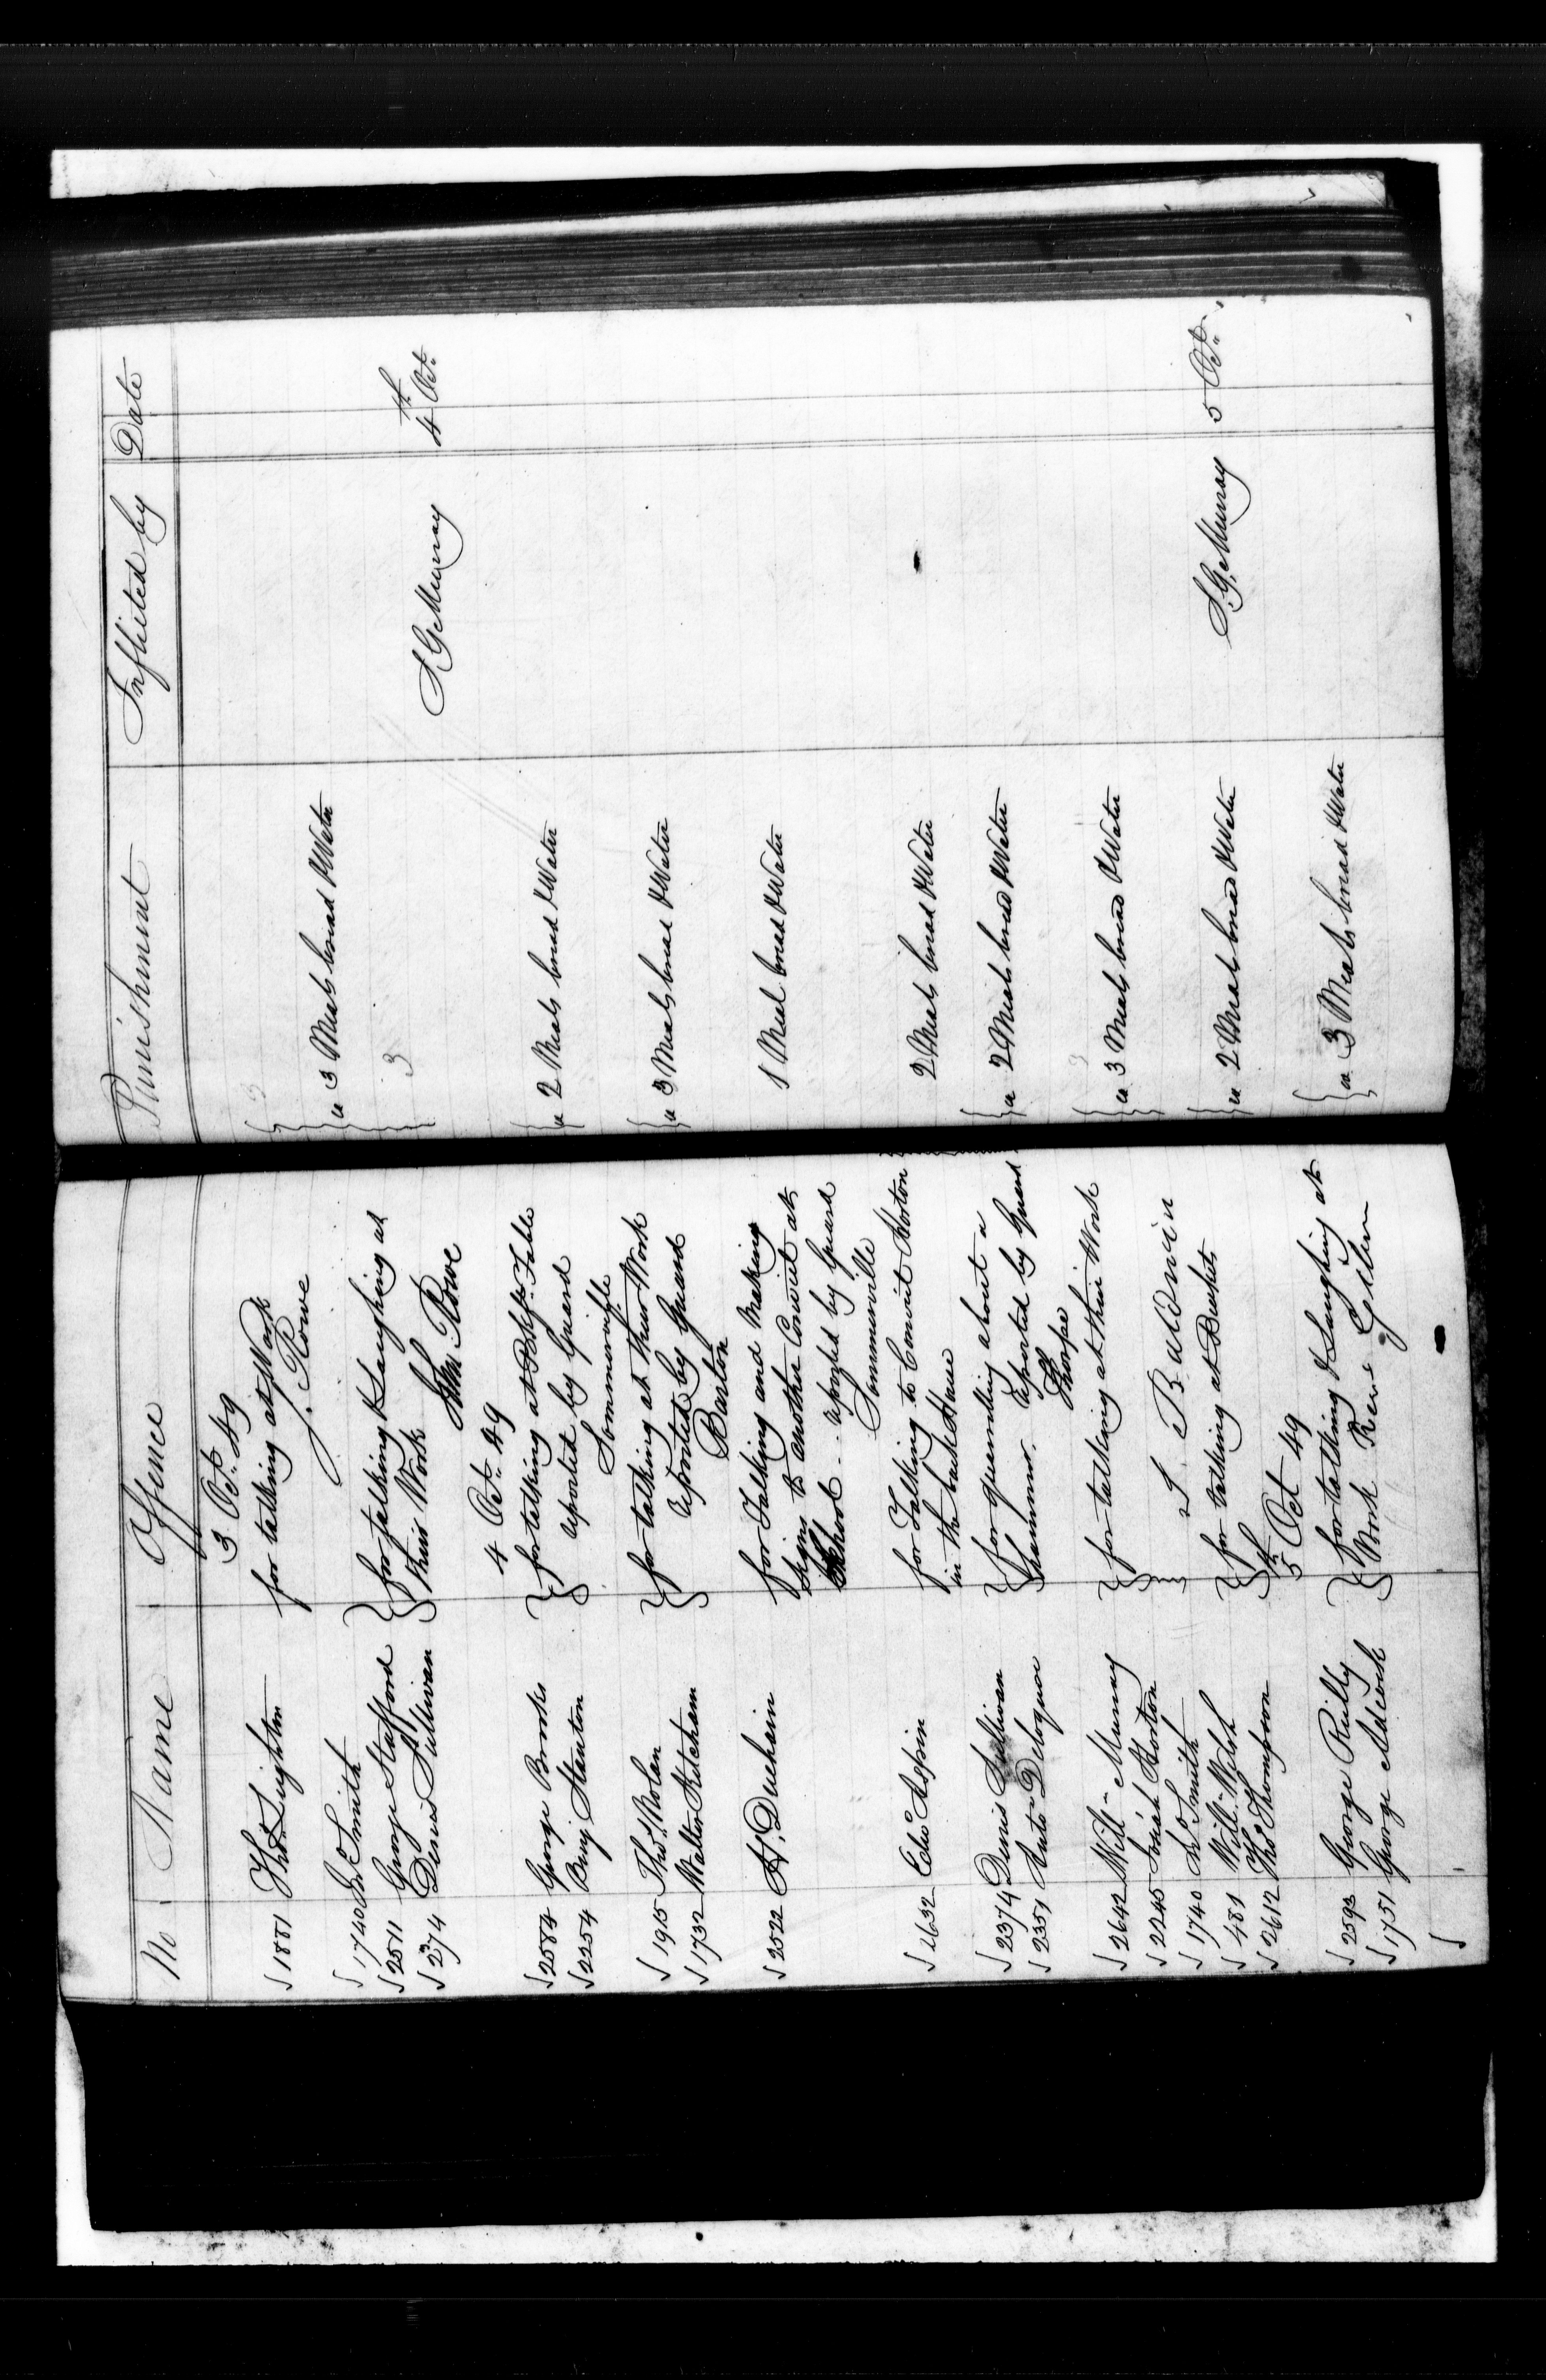 No Name Offence Punishment Inflicted by Date
3 Oct. 49
1881 Thos. Leighton for talking at Work
J. Rowe
1740 Jno Smith
a 3 Meals bread & Water
2511 George Stafford for talking & Laughing at
2374 Denis Sullivan their Work
3
John Rowe
S. G. McMurray 4th Oct.
4 Oct. 49
2584 George Brooks for talking at Bkfst. Table
2254 Benj Stanton reported by Guard
a 2 Meals bread & Water
Sommerville
1915 Thos. Nolan for talking at their Work
1732 Walter Ketcham reported by Guard
a 3 Meals bread & Water
Barton
2522 H. Duchein for Talking and Making
Signs to another Convict at
School - reported by Guard
1 Meal bread & Water
Sommerville
2632 Edwd Aspin for Talking to Convict Horton
in the wash House
2 Meals bread & Water
2374 Denis Sullivan for quarrelling about a
2351 Anto Deloguer hammer. reported by Guard
a 2 Meals bread & Water
Thorpe
2642 Will Murray for talking at their Work
2245 Josiah Horton
a 3 Meals bread & Water
1740 Jno Smith
L. Baldwin
481 Will Welsh for talking at Breakft
2612 Thos Thompson
a 2 Meals bread & Water
S. G. McMurray 5 Oct.
5th Oct 49
2593 George Reilly for talking & Laughing at
1751 George Aldcork Work
a 3 Meals bread & Water